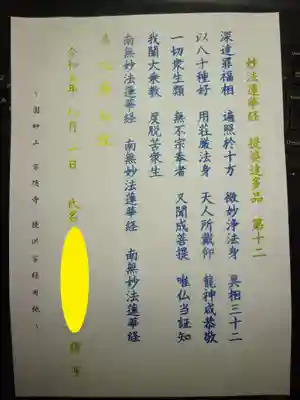 妙法蓮華経 提婆達多品 第十二
深達罪福相 遍照於十方 微妙浄法身 具相三十二
以八十種好 用荘厳法身 天人所戴仰 龍神咸恭敬
一切衆生類 無不宗奉者 又聞成菩提 唯仏当証知
我闡大乗教 度脱苦衆生
南無妙法蓮華経 南無妙法蓮華経 南無妙法蓮華経
令和 年 月 一日 氏名